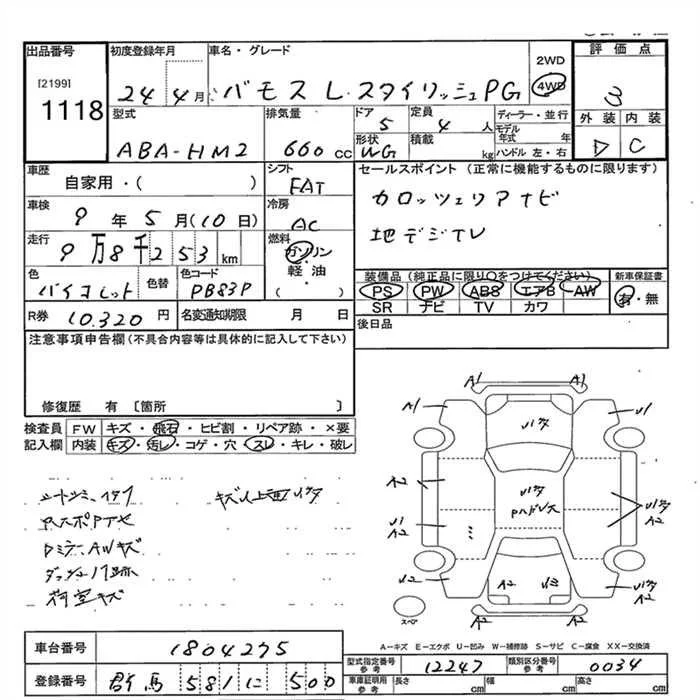 出品番号 初度登録年月 車名・グレード 2WD 4WD 評価点
[2199]
1118
24年4月 バモス L スタイリッシュPG 3
型式 排気量 ドア 定員 ディーラー・並行 外装 内装
ABA-HM2 660cc 5 4人 モデル年式 年 D C
形状 積載 kg ハンドル 左・右
WG
車歴 シフト セールスポイント (正常に機能するものに限ります)
自家用・( ) FAT カロッツェリアナビ
車検 冷房
9年5月(10日) AC 地デジTV
走行 燃料
9万8千253km ガソリン・軽油・( )
色 色替 色コード 装備品 (純正品に限り○をつけてください) 新車保証書
バイオレット PB83P PS PW ABS エアB AW 有・無
SR ナビ TV カワ
R券 10,320円 名変通知期限 月 日 後日品
注意事項申告欄 (不具合内容等は具体的に記入して下さい)
修復歴 有 〔箇所 〕
検査員 FW キズ・飛石・ヒビ割・リペア跡・×要
記入欄 内装 キズ・汚レ・コゲ・穴・スレ・キレ・破レ
A1 A1
A1 U1
A2
U1
A2 A2
U2
A2 A2
A2 A2
スペア
DミラーAWキズ
荷室キズ
A-キズ E-エクボ U-凹み W-補修跡 S-サビ C-腐食 XX-交換済
車台番号 1804275
型式指定番号 参考 12247 類別区分番号 参考 0034
登録番号 群馬 581 に 500
車庫証明用 参考 長さ cm 幅 cm 高さ cm